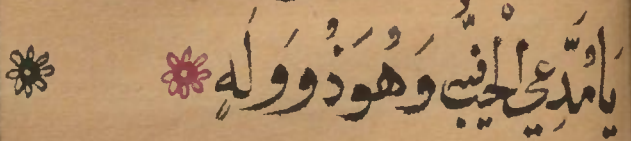 يَا مُدَّعِي الْحُبِّ فِينَا وَهُوَ ذُو وَلَهٍ